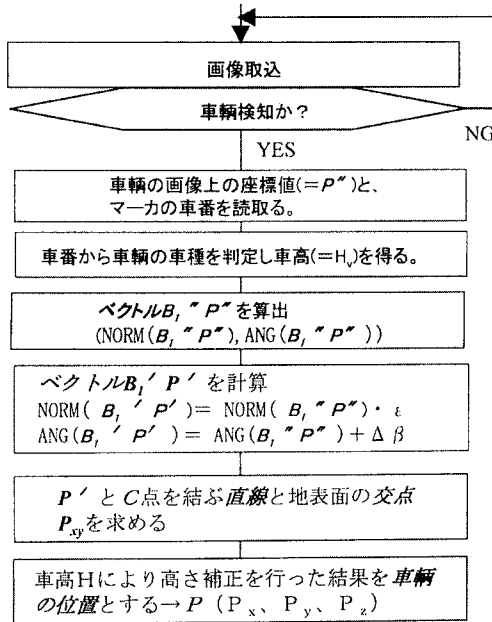 画像取込
車輌検知か？
NG
YES
車輌の画像上の座標値(=P″)と、
マーカの車番を読取る。
車番から車輌の車種を判定し車高(=Hv)を得る。
ベクトルB₁″P″を算出
(NORM(B₁″P″), ANG(B₁″P″))
ベクトルB₁′P′を計算
NORM( B₁′P′)= NORM( B₁″P″)・ε
ANG(B₁′P′)= ANG(B₁″P″)+Δβ
P′とC点を結ぶ直線と地表面の交点
Pxyを求める
車高Hにより高さ補正を行った結果を車輌
の位置とする→P（Pｘ、Pｙ、Pｚ）